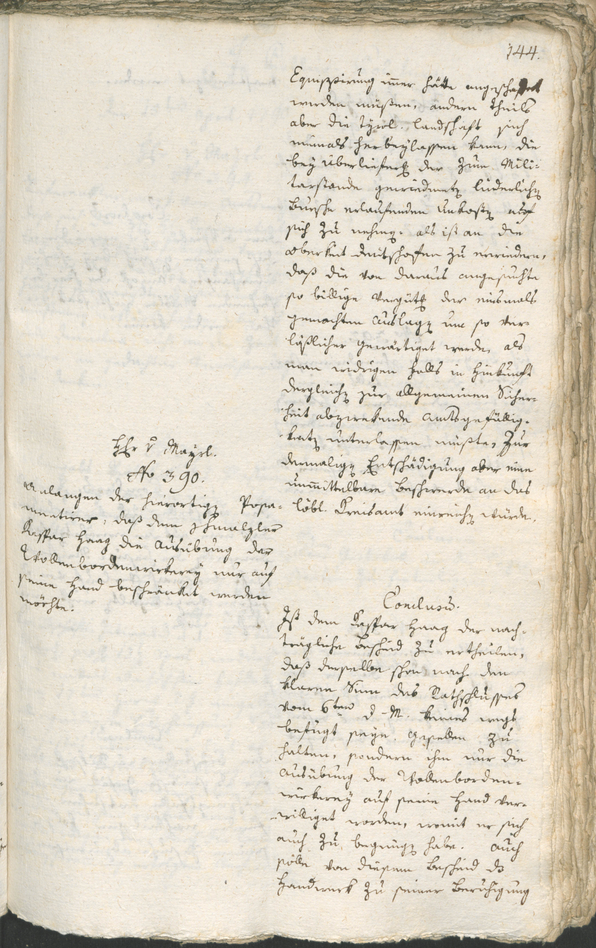 144.
Equippirung immer hätte angeschaffet
werden müßen, andern theils
aber die Tyrol. Landschaft sich
niemals herbeylassen kann, die
bey Überlieferg der zum Mili-
tarstande gewidmeten liederlichen
Bursche erlaufenden Unkosten auf
sich zu nehmen. als ist an die
Oberkeit Deutschofen zu erwiedern,
daß die von daraus angesuchte
so billige Vergütg der einsmals
gemachten Auslagen um so ver-
läßlicher gewärtiget werde, als
man widrigen falls in Hinkunft
dergleichen zur allgemeinen Sicher-
heit abzweckende Amtsgefällig-
keiten unterlassen müßte, zur
dermaligen Entschädigung aber eine
unmittelbare Beschwerde an das
löbl. Kreisamt einreichen würde.
Hr v Mayrl.
No 390.
Anlangen der hierortigen Posa-
mentirer, daß dem Schmalzler
Kaspar Haag die Ausübung der
Wollenbordenwirkerey nur auf
seine Hand beschränket werden
möchte.
Conclusum.
Ist dem Kaspar Haag der nach-
trägliche Bescheid zu ertheilen,
daß derselbe schon nach dem
klaren Sinn des Rathschlusses
vom 6ten d. M. keines wegs
befugt seye, Gesellen zu
halten, sondern ihm nur die
Ausübung der Wollenborden-
wirkerey auf seine Hand ver-
williget worden, womit er sich
auch zu begnügen habe. Auch
solle von diesem Bescheid das
Handwerk zu seiner Beruhigung